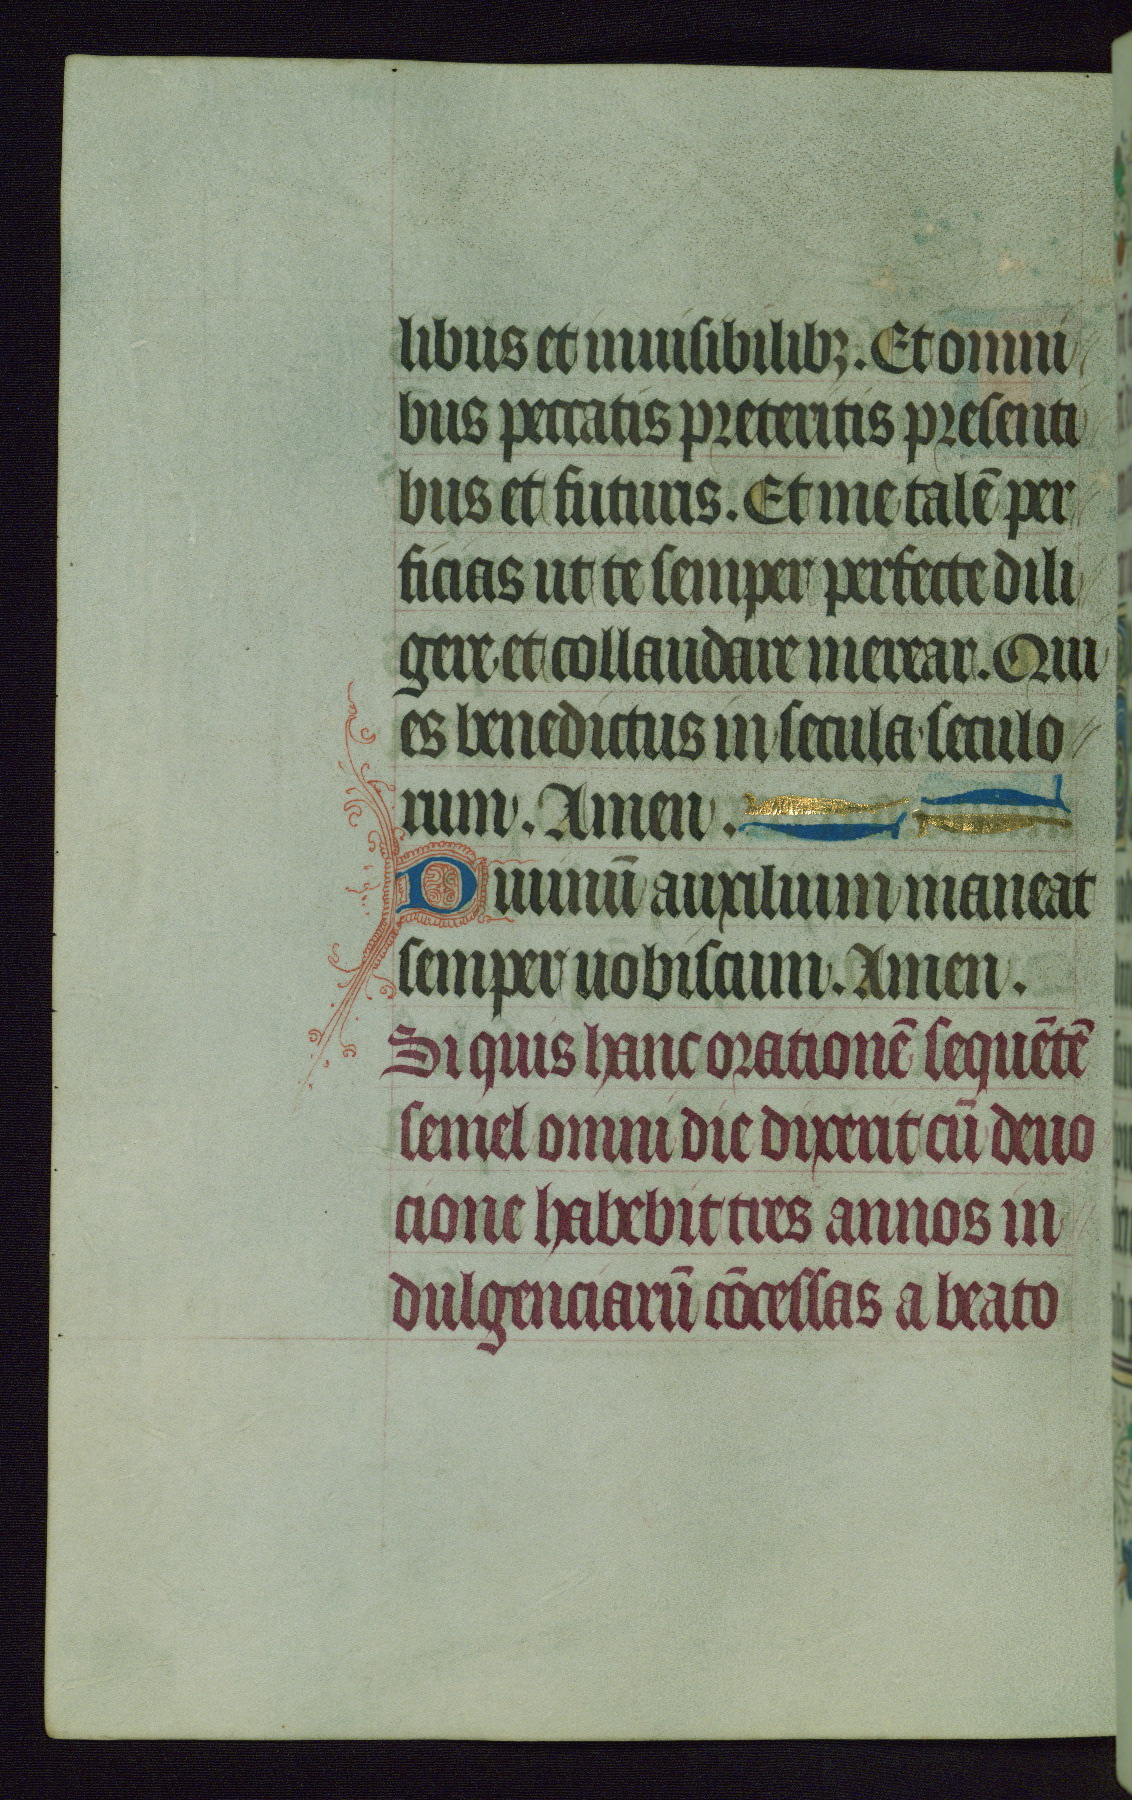 libus et inuisibilibꝫ. Et omni
bus peccatis preteritis presenti
bus et futuris. Et me talē per
ficias ut te semper perfecte dili
gere et collaudare merear. Qui
es benedictus in secula seculo
rum. Amen.
Diuinū auxilium maneat
semper uobiscum. Amen.
Si quis hanc orationē sequētē
semel omni die dixerit cū deuo
cione habebit tres annos in
dulgenciarū cōcessas a beato